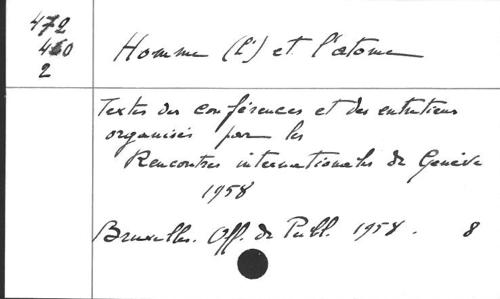 472
460
2
Homme (L') et l'atome
Textes des conférences et des entretiens
organisés par les
Rencontres internationales de Genève
1958
Bruxelles. Off. de Publ. 1958. 8